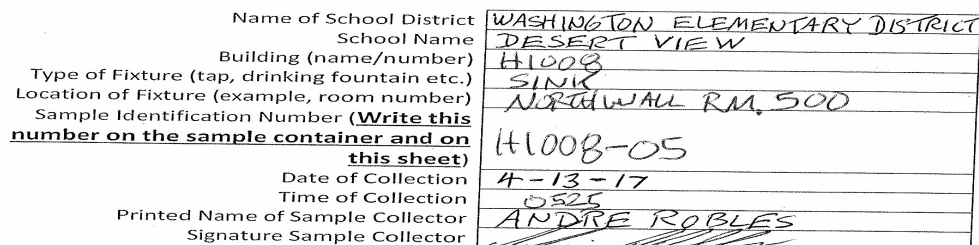 Name of School District WASHINGTON ELEMENTARY DISTRICT
School Name DESERT VIEW
Building (name/number) H1008
Type of Fixture (tap, drinking fountain etc.) SINK
Location of Fixture (example, room number) NORTH WALL RM. 500
Sample Identification Number (Write this
number on the sample container and on
this sheet) H1008-05
Date of Collection 4-13-17
Time of Collection 0525
Printed Name of Sample Collector ANDRE ROBLES
Signature Sample Collector